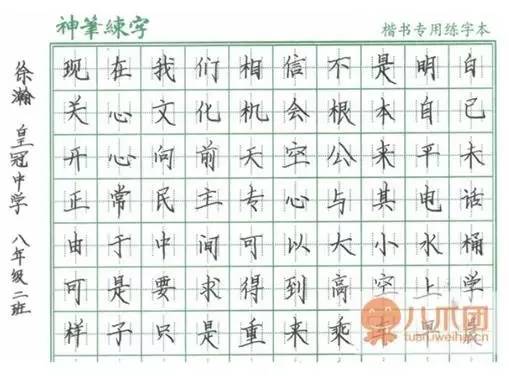 神筆練字
楷书专用练字本
徐瀚 皇冠中学 八年级二班
现在我们相信不是明白
关心文化机会根本自己
开心向前天空公来平未
正常民主专心与其电话
由于中间可以大小水桶
可是要求得到高空上学
样子只是重来乘车
八爪团